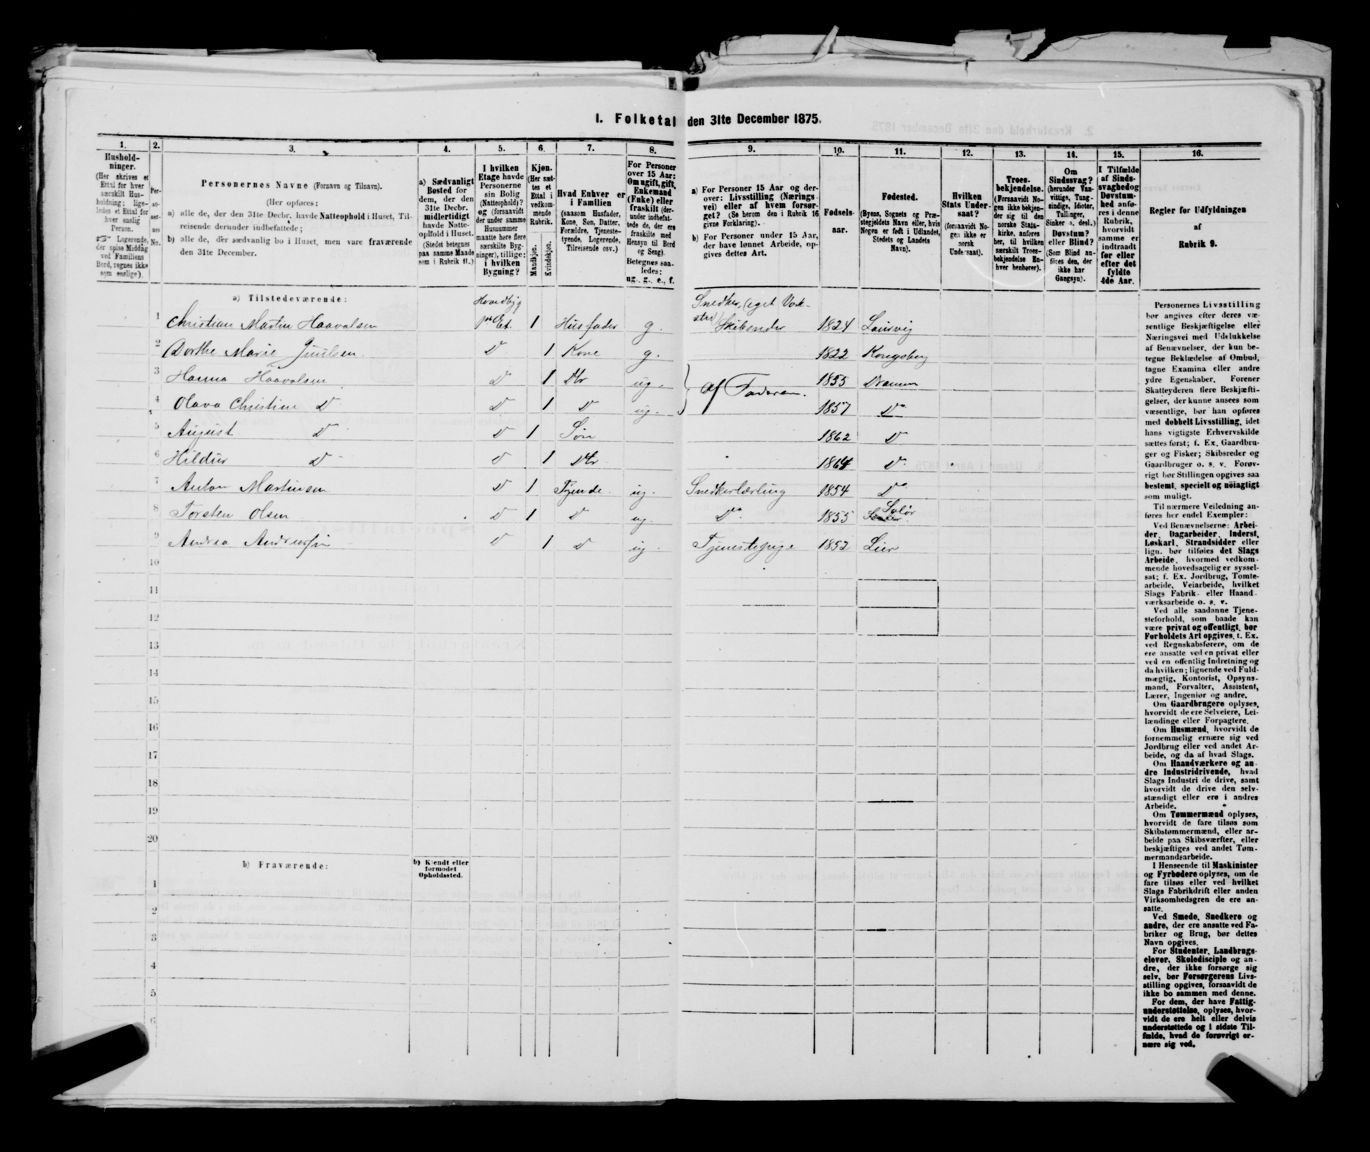 1. Folketal den 31te December 1875.
1. 2. 3. 4. 5. 6. 7. 8. 9. 10. 11. 12. 13. 14. 15. 16.
Husholdninger.
(Her skrives et Ettal for hver særskilt Husholdning; ligeledes et Ettal for hver enslig Person.
Logerende, der spise Middag ved Familiens Bord, regnes ikke som enslige.)
Personernes Navne (Fornavn og Tilnavn).
(Her opføres:
a) alle de, der den 31te Decbr. havde Natteophold i Huset, Tilreisende derunder indbefattede;
b) alle de, der sædvanlig bo i Huset, men vare fraværende den 31te December.
a) Sædvanligt Bosted for dem, der den 31te Decbr. midlertidigt havde Natteophold i Huset.
(Stedet betegnes paa samme Maade som i Rubrik 11.)
I hvilken Etage havde Personerne sin Bolig (Natteophold)?
og (forsaavidt der under samme Husnummer maatte høre flere særskilte Bygninger), tillige: i hvilken Bygning?
Kjøn.
(Her sættes et Ettal i vedkommende Rubrik.
Mandkjøn. Kvindekjøn.
Hvad Enhver er i Familien
(saasom Husfader, Kone, Søn, Datter, Forældre, Tjenestetyende, Logerende, Tilreisende osv.)
For Personer over 15 Aar: Om ugift, gift, Enkemand (Enke) eller fraskilt
Betegnes saaledes: ug., g., e., f.
a) For Personer 15 Aar og derover: Livsstilling (Næringsvei) eller af hvem forsørget? (Se herom den i Rubrik 16 givne Forklaring).
b) For Personer under 15 Aar, der have lønnet Arbeide, opgives dettes Art.
Fødselsaar.
Fødested.
(Byens, Sognets og Præstegjeldets Navn eller, hvis Nogen er født i Udlandet, Stedets og Landets Navn).
Hvilken Stats Undersaat?
(forsaavidt Nogen ikke er norsk Undersaat).
Troesbekjendelse.
(Forsaavidt Nogen ikke bekjender sig til den norske Statskirke, anføres her, til hvilken særskilt Troesbekjendelse Enhver henhører).
Om Sindssvag? (herunder Vanvittige, Tungsindige, Idioter, Tullinger, Sinker o. desl.)
Døvstum? eller Blind?
(Som Blind anføres den, der ikke har Gangsyn).
I Tilfælde af Sindssvaghed og Døvstumhed anføres i denne Rubrik, hvorvidt samme er indtraadt før eller efter det fyldte 4de Aar.
Regler for Udfyldningen af Rubrik 9.
a) Tilstedeværende: Hovedbyg
1 Christian Martin Haavalsen 1ste Et. 1 Husfader g. Snedker, (eget Værksted) Skibeeder 1824 Laurvig
2 Dorthe Marie Juulsen D 1 Kone g. 1822 Kongsberg
3 Hanna Haavalsen D 1 Dtr ug. 1855 Drammen
} af Faderen
4 Olava Christine D D 1 D ug. 1857 Do
5 August D D 1 Søn 1862 D
6 Hildur D D 1 Dtr 1864 D
7 Anton Martinsen D 1 Tyende ug. Snedkerlærling 1854 Do
8 Torsten Olsen D 1 D ug Do 1855 Solør
9 Andrea D 1 D ug. Tjenestepige 1852 Lier
10
11
12
13
14
15
16
17
18
19
20
b) Fraværende: b) Kjendt eller formodet Opholdssted.
1
2
3
4
5
6
Personernes Livsstilling
bør angives efter deres væ-
sentlige Beskjæftigelse eller
Næringsvei med Udelukkelse
af Benævnelser, der kun be-
tegne Bekladelse af Ombud,
tagne Examina eller andre
ydre Egenskaber. Forener
Skatteyderen flere Beskjæfti-
gelser, der kunne ansees som
væsentlige, bør han opføres
med dobbelt Livsstilling, idet
hans vigtigste Erhvervskilde
sættes først; f. Ex. Gaardbru-
ger og Fisker; Skibsreder og
Gaardbruger o. s. v. Forøv-
rigt bør Stillingen opgives saa
bestemt, specielt og nøiagtigt
som muligt.
Til nærmere Veiledning an-
føres her endel Exempler:
Ved Benævnelserne: Arbei-
der, Dagarbeider, Inderst,
Løskarl, Strandsidder eller
lign. bør tilføies det Slags
Arbeide, hvormed vedkom-
mende hovedsagelig er syssel-
sat; f. Ex. Jordbrug, Tomte-
arbeide, Veiarbeide, hvilket
Slags Fabrik- eller Haand-
værksarbeide o. s. v.
Ved alle saadanne Tjene-
steforhold, som baade kan
være privat og offentligt, bør
Forholdets Art opgives, t. Ex.
ved Regnskabsførere, om de
ere ansatte ved en privat eller
ved en offentlig Indretning og
da hvilken; lignende ved Fuld-
mægtig, Kontorist, Opsyns-
mand, Forvalter, Assistent,
Lærer, Ingeniør og andre.
Om Gaardbrugere oplyses,
hvorvidt de ere Selveiere, Lei-
lændinge eller Forpagtere.
Om Husmænd, hvorvidt de
fornemmelig ernære sig ved
Jordbrug eller ved andet Ar-
beide, og da af hvad Slags.
Om Haandværkere og an-
dre Industridrivende, hvad
Slags Industri de drive, samt
hvorvidt de drive den selv-
stændigt eller ere i andres
Arbeide.
Om Tømmermænd oplyses,
hvorvidt de fare tilsøs som
Skibstømmermænd, eller ar-
beide paa Skibsværfter, eller
beskjæftiges ved andet Tøm-
mermandsarbeide.
I Henseende til Maskinister
og Fyrbødere oplyses, om de
fare tilsøs eller ved hvilket
Slags Fabrikdrift eller anden
Virksomhedsgren de ere an-
satte.
Ved Smede, Snedkere og
andre, der ere ansatte ved Fa-
briker og Brug, bør dettes
Navn opgives.
For Studenter, Landbrugs-
elever, Skoledisciple og an-
dre, der ikke forsørge sig
selv, bør Forsørgerens Livs-
stilling opgives, forsaavidt de
ikke bo sammen med denne.
For dem, der have Fattig-
understøttelse, oplyses, hvor-
vidt de ere helt eller delvis
understøttede og i sidste Til-
fælde, hvad de forøvrigt er-
nære sig ved.